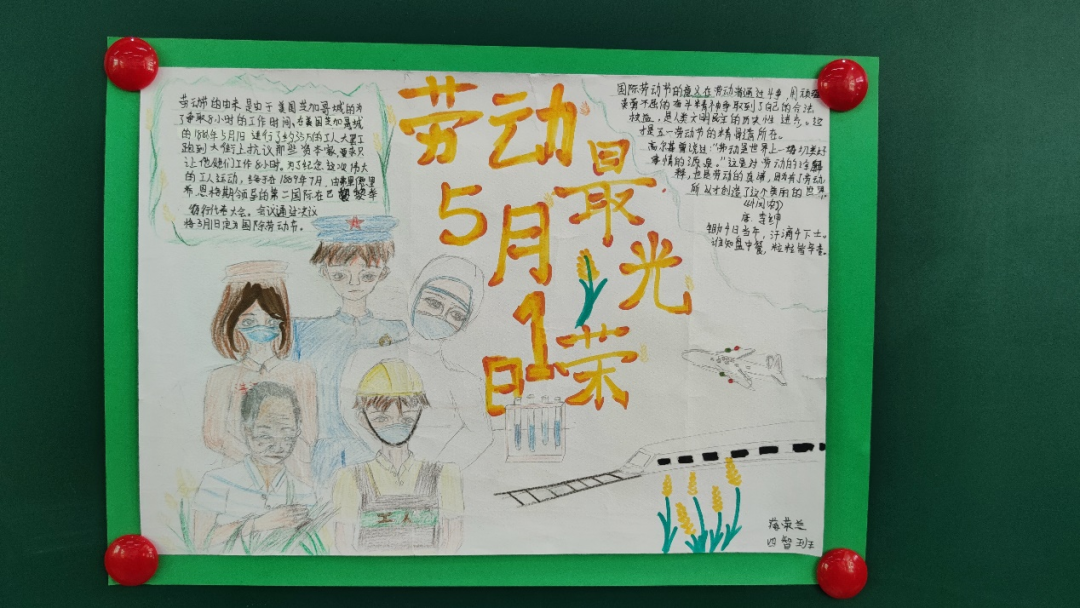 劳动节的由来是由于美国芝加哥城的为
了争取8小时的工作时间。在美国芝加哥城
的1886年5月1日进行了约35万的工人大罢工
跑到大街上抗议那些资本家要求只
让他她们工作8小时。为了纪念这次伟大
的工人运动,终于在1889年7月,由弗里德里
希恩格斯领导的第二国际在巴黎举
行代表大会。会议通过决议
将5月1日定为国际劳动节。
劳动最光荣
5月1日
国际劳动节的意义在劳动者通过斗争,用顽强
英勇不屈的奋斗精神争取到了自己的合法
权益,是人类文明民主的历史性进步。这
才是五一劳动节的精髓所在。
高尔基曾说过:“劳动是世界上一切
事情的源泉。”这是对劳动的诠释
释,也是劳动的真谛,因为有了劳动
所以才创造了这个美丽的世界
《悯农》
唐 李绅
锄禾日当午,汗滴禾下土。
谁知盘中餐,粒粒皆辛苦。
工人
四智班